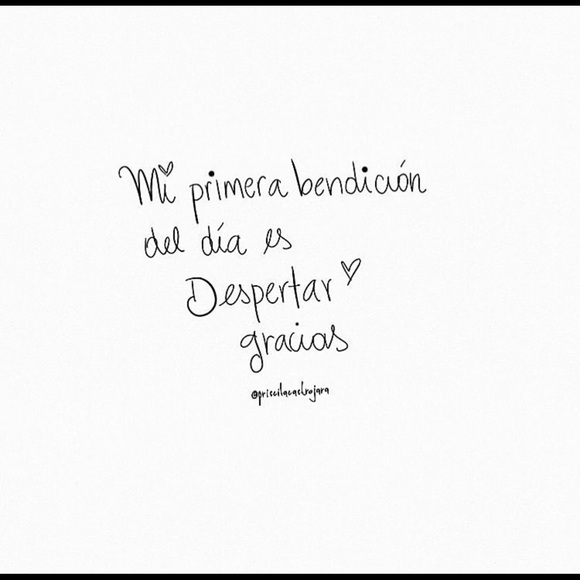 Mi primera bendición
del día es
Despertar
gracias
@priscilacastrojara